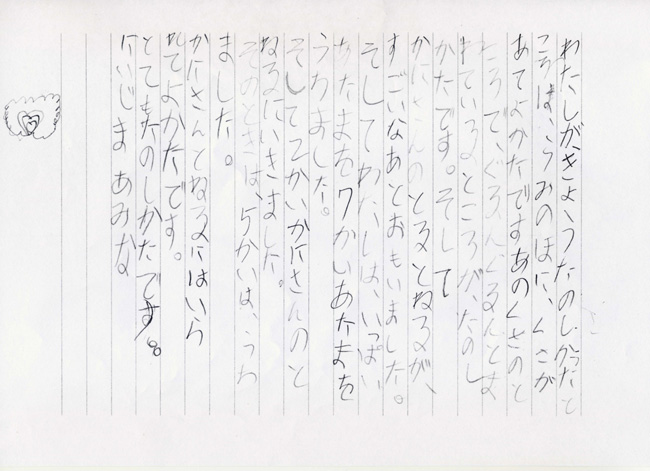 わたしが、きょうたのしかったと
ころは、うみのほに、くさが
あてよかたですあのくさのと
ころで、ぐるんぐるんとま
わているところが、たのし
かたです。そして
かにさんのとるとねるが、
すごいなあとおもいました。
そしてわたしは、いっぱい
あたまを7かいあたまを
うちました!。
そして2かいかにさんのと
ねるにいきました。
そのときは、5かいは、うち
ました。
かにさんとねるにはいら
れてよかたです。
とてもたのしかたです。
にいじま あみな